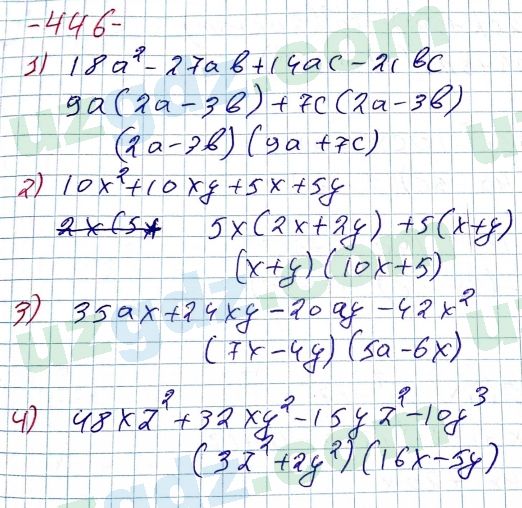 -446-
1) 18a² - 27aв + 14ac - 21вc
9a(2a - 3в) + 7c(2a - 3в)
(2a - 3в)(9a + 7c)
2) 10x² + 10xy + 5x + 5y
2x(5x 5x(2x + 2y) + 5(x + y)
(x + y)(10x + 5)
3) 35ax + 24xy - 20ay - 42x²
(7x - 4y)(5a - 6x)
4) 48xz² + 32xy² - 15yz² - 10y³
(3z² + 2y²)(16x - 5y)
uzgdz.com